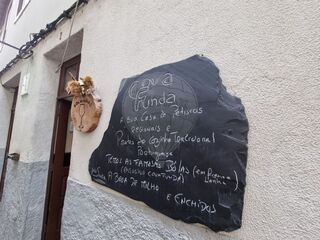 Cova
Funda
A Boa Casa de Petiscos
Regionais e
Pratos da Cozinha Tradicional
Portuguesa
Temos as Famosas Bôlas (em Forno a
Lenha)
(Exclusivo Cova Funda)
A Broa de Milho
e Enchidos